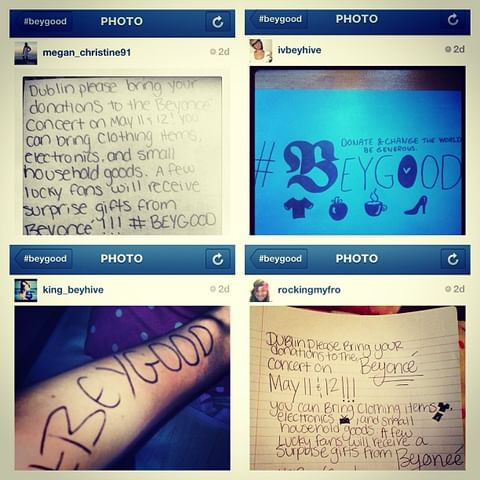 #beygood
PHOTO
megan_christine91
2d
Dublin please bring your
donations to the Beyoncé
concert on May 11 & 12! you
can bring clothing items,
electronics, and small
household goods. A few
lucky fans will receive
surprise gifts from
Beyonce'!!! #BEYGOOD
#beygood
PHOTO
ivbeyhive
2d
DONATE & CHANGE THE WORLD
BE GENEROUS.
#BEYGOOD
#beygood
PHOTO
king_beyhive
2d
#BEYGOOD
#beygood
PHOTO
rockingmyfro
2d
Dublin Please Bring your
donations to the
concert on Beyoncé
May 11 & 12!!!
you can Bring Clothing items
electronics, and small
household goods. A few
Lucky fans will receive a
surprise gifts from Beyoncé